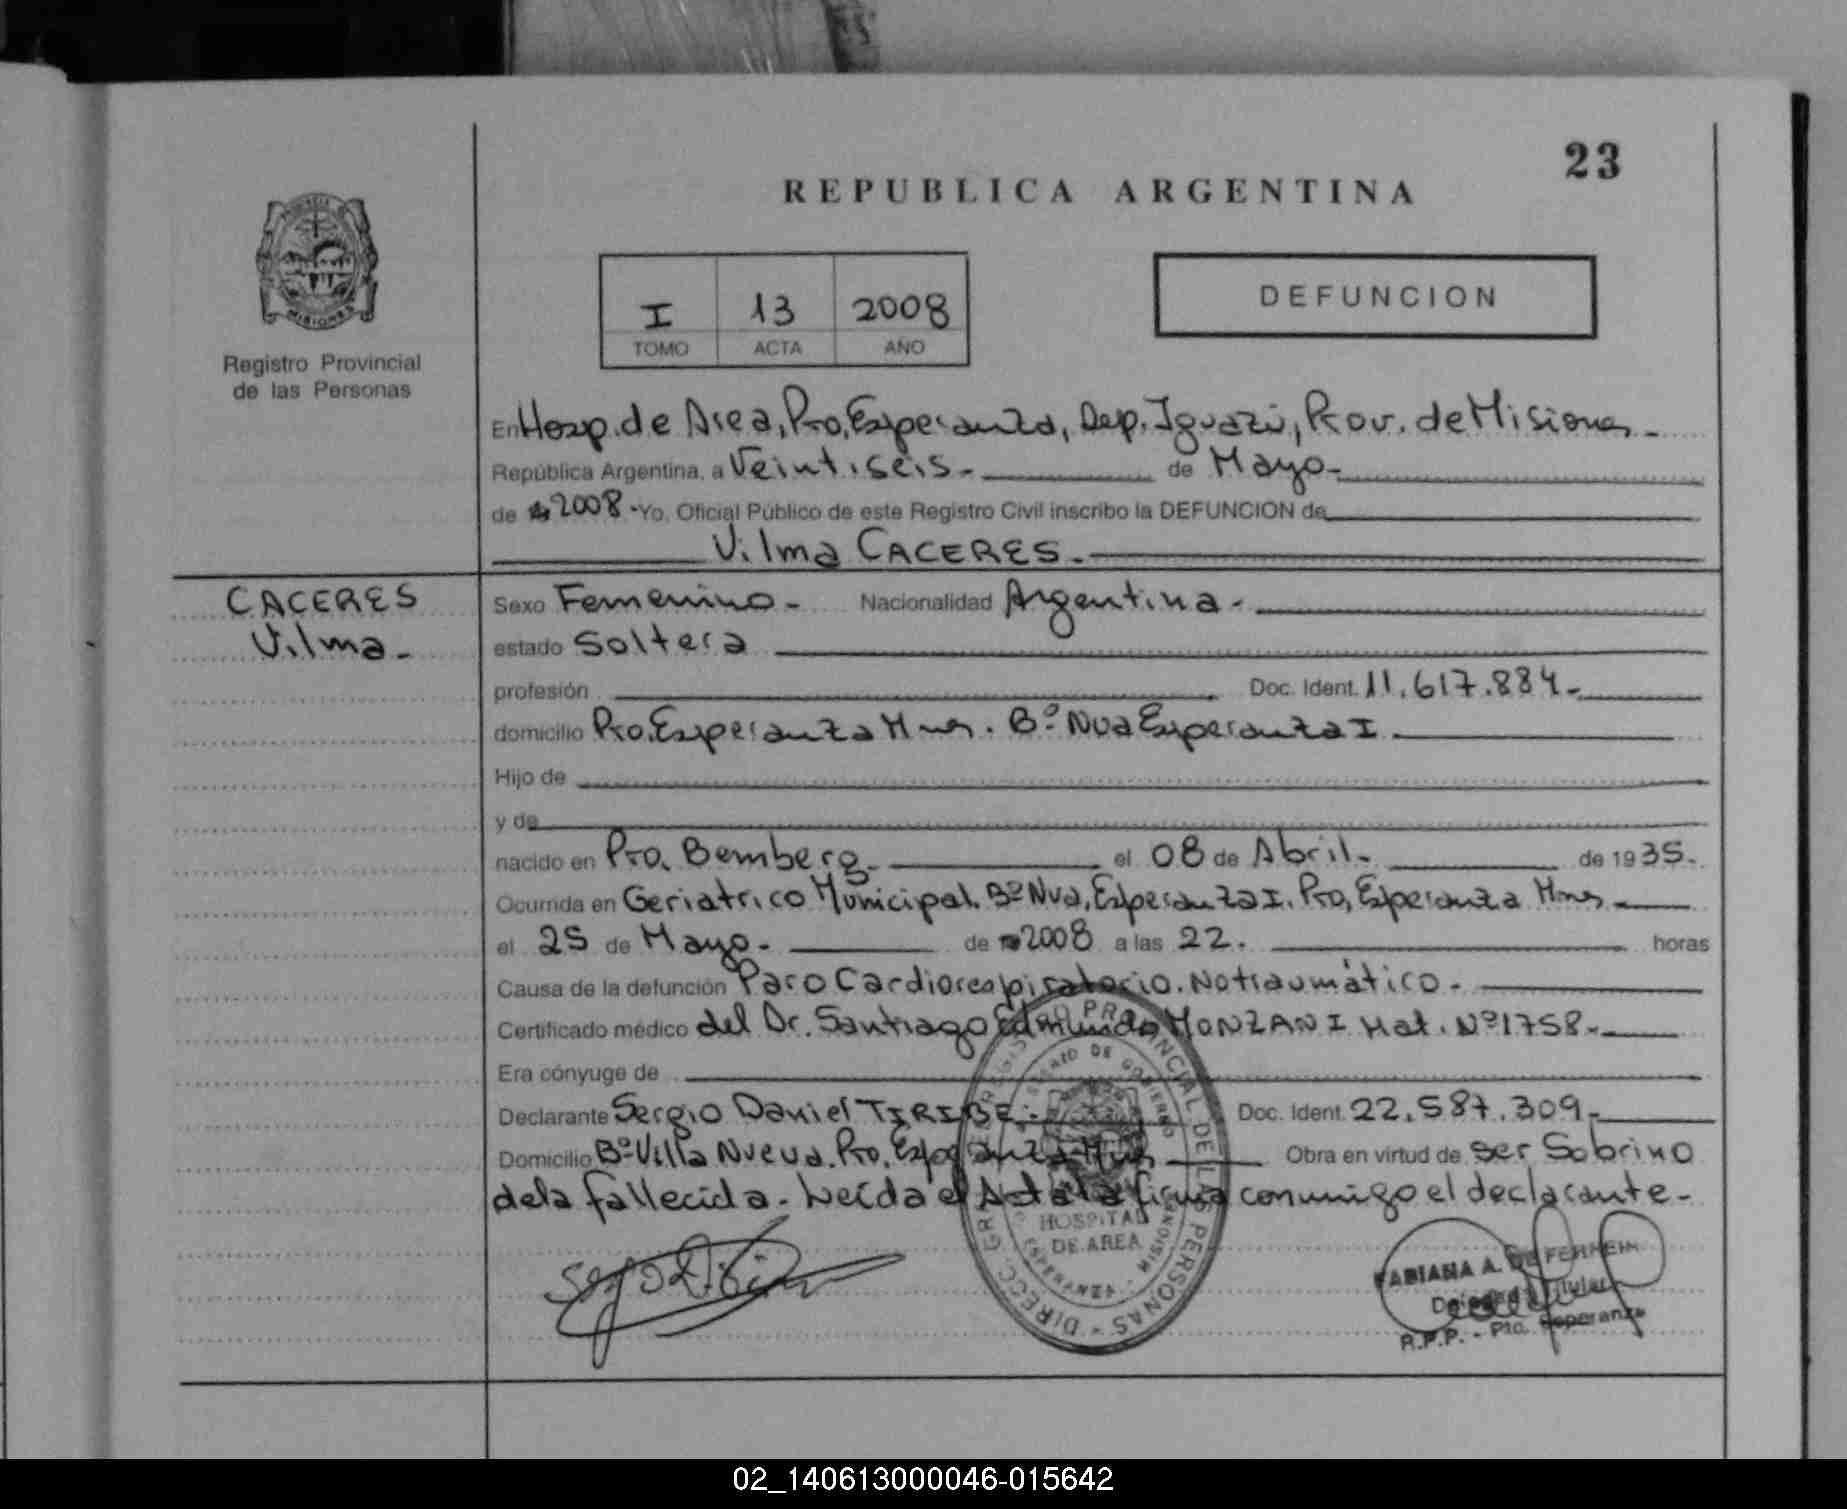 23
REPUBLICA ARGENTINA
I 13 2008
TOMO ACTA AÑO
DEFUNCION
MISIONES
Registro Provincial
de las Personas
En Hosp. de Area, Pto, Esperanza, Dep. Iguazú, Prov. de Misiones -
República Argentina, a Veintiseis - de Mayo -
de 2008 - Yo, Oficial Público de este Registro Civil inscribo la DEFUNCION de
Vilma CACERES -
CACERES
Vilma -
Sexo Femenino - Nacionalidad Argentina -
estado Soltera
profesión Doc. Ident. 11.617.884 -
domicilio Pto. Esperanza Mnes. Bº Nva Esperanza I
Hijo de
y de
nacido en Pto. Bemberg - el 08 de Abril - de 1935 -
Ocurrida en Geriatrico Municipal. Bº Nva, Esperanza I. Pto, Esperanza Mnes -
el 25 de Mayo - de 2008 a las 22. horas
Causa de la defunción Paro Cardiorespiratorio. No traumático -
Certificado médico del Dr. Santiago Edmundo MONZANI Mat. Nº 1758 -
Era cónyuge de
Declarante Sergio Daniel TIRIBE - Doc. Ident. 22.587.309 -
Domicilio Bº Villa Nueva. Pto. Esperanza Mnes Obra en virtud de ser Sobrino
de la fallecida - Leída el Acta la firma conmigo el declarante -
DIRECC. GRAL. REGISTRO PROVINCIAL DE LAS PERSONAS
HOSPITAL
DE AREA
ESPERANZA - MISIONES
FABIANA A. DE FERREIR
Delegada Titular
R.P.P. - Pto. Esperanza
02_140613000046-015642